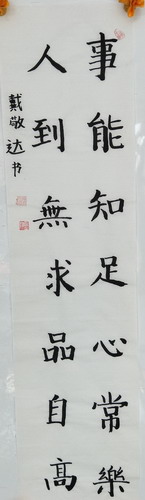 事能知足心常樂
人到無求品自高
戴敬达书